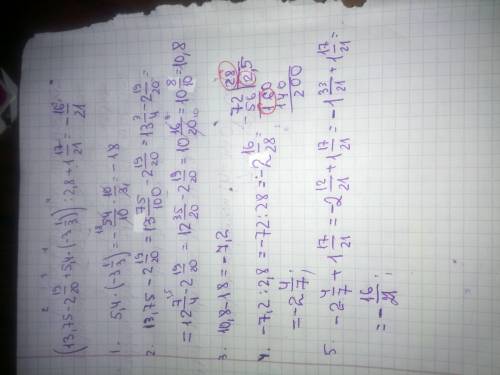 (13,75 - 2 19/20 + 5,4 · (-3 1/3)) : 2,8 + 1 17/21 = - 16/21
1. 5,4 · (-3 1/3) = - 54/10 · 10/3 = -18
2. 13,75 - 2 19/20 = 13 75/100 - 2 19/20 = 13 3/4 - 2 19/20 =
= 12 7/4 - 2 19/20 = 12 35/20 - 2 19/20 = 10 16/20 = 10 8/10 = 10,8
3. 10,8 - 18 = -7,2
4. -7,2 : 2,8 = -72 : 28 = -2 16/28 =
= -2 4/7;
-72 | 28
56 | 2,5
160
140
200
5. -2 4/7 + 1 17/21 = -2 12/21 + 1 17/21 = -1 33/21 + 1 17/21
= - 16/21;